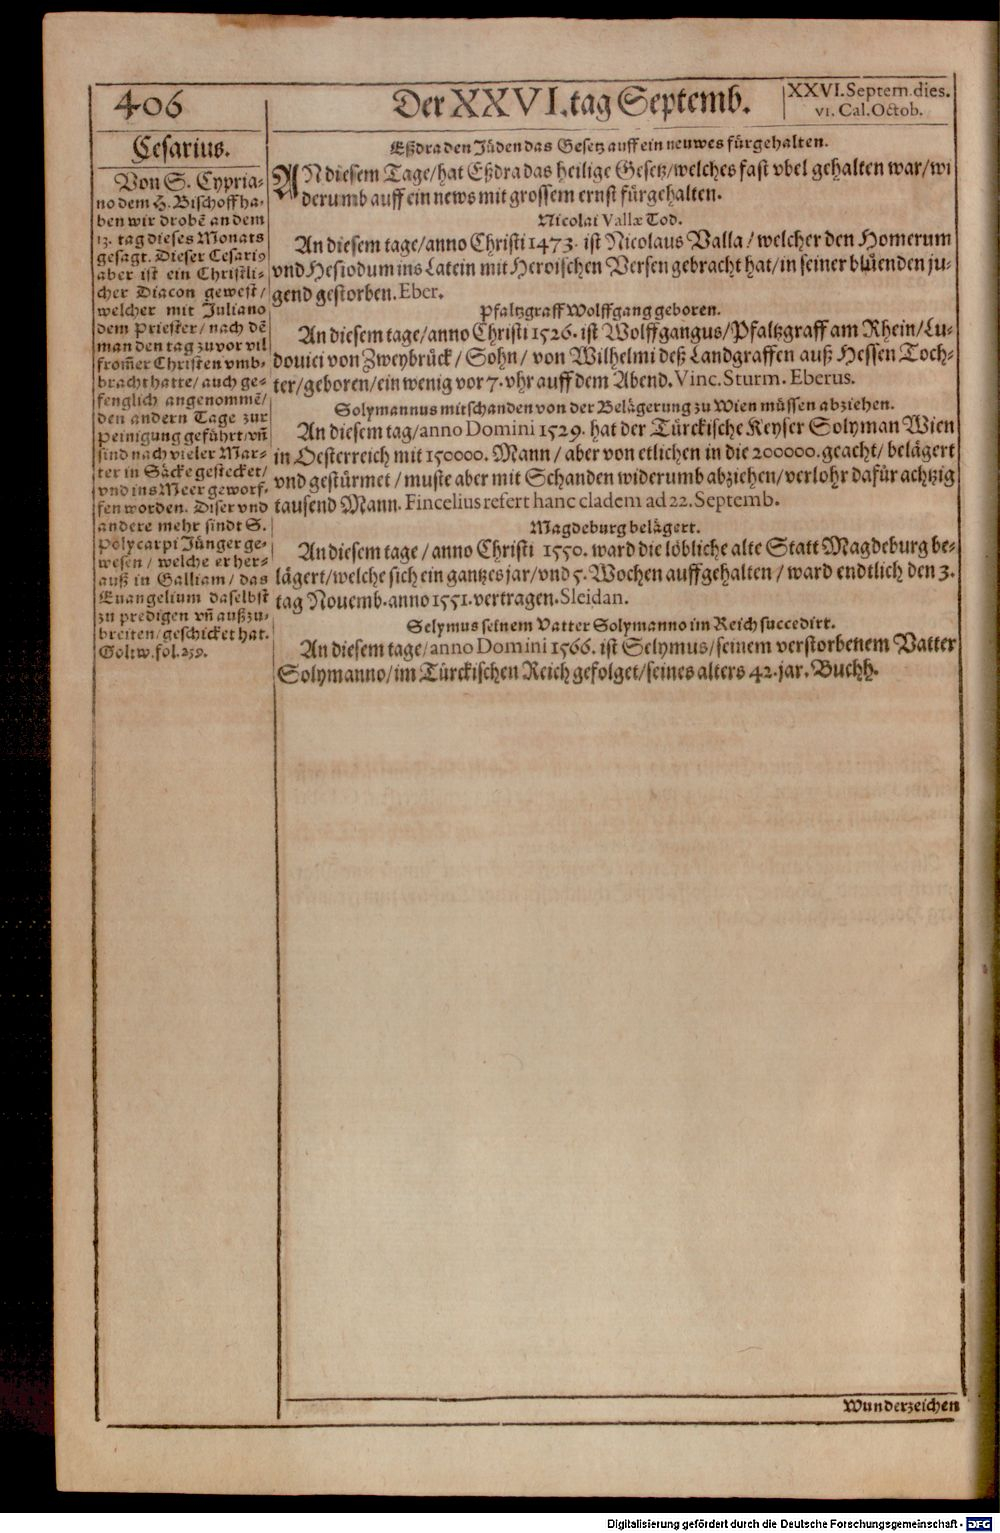 406
Der XXVI. tag Septemb.
XXVI. Septem. dies.
VI. Cal. Octob.
Cesarius.
Von S. Cypria-
no dem H. Bischoff ha-
ben wir drobē an dem
13. tag dieses Monats
gesagt. Dieser Cesariꝰ
aber ist ein Christli-
cher Diacon gewest/
welcher mit Juliano
dem Priester/ nach dē
man den tag zuvor vil
from̄er Christen vmb-
bracht hatte/ auch ge-
fenglich angenommē/
den andern Tage zur
Peinigung geführt/ vn̄
sind nach vieler Mar-
ter in Säcke gestecket/
vnd ins Meer geworf-
fen worden. Diser vnd
andere mehr sindt S.
Polycarpi Jünger ge-
wesen/ welche er her-
auß in Galliam/ das
Euangelium daselbst
zu predigen vn̄ außzu-
breiten/ geschicket hat.
Goltw. fol. 259.
Eßdra den Jüden das Gesetz auff ein neuwes fürgehalten.
AN diesem Tage/ hat Eßdra das heilige Gesetz/ welches fast vbel gehalten war/ wi
derumb auff ein news mit grossem ernst fürgehalten.
Nicolai Vallæ Tod.
An diesem tage/ anno Christi 1473. ist Nicolaus Valla/ welcher den Homerum
vnd Hesiodum ins Latein mit Heroischen Versen gebracht hat/ in seiner blüenden ju-
gend gestorben. Eber.
Pfaltzgraff Wolffgang geboren.
An diesem tage/ anno Christi 1526. ist Wolffgangus/ Pfaltzgraff am Rhein/ Lu-
douici von Zweybrück/ Sohn/ von Wilhelmi deß Landgraffen auß Hessen Toch-
ter/ geboren/ ein wenig vor 7. vhr auff dem Abend. Vinc. Sturm. Eberus.
Solymannus mit schanden von der Belägerung zu Wien müssen abziehen.
An diesem tag/ anno Domini 1529. hat der Türckische Keyser Solyman Wien
in Oesterreich mit 150000. Mann/ aber von etlichen in die 200000. geacht/ belägert
vnd gestürmet/ muste aber mit Schanden widerumb abziehen/ verlohr dafür achtzig
tausend Mann. Fincelius refert hanc cladem ad 22. Septemb.
Magdeburg belägert.
An diesem tage/ anno Christi 1550. ward die löbliche alte Statt Magdeburg be-
lägert/ welche sich ein gantzes jar/ vnd 5. Wochen auffgehalten/ ward endtlich den 3.
tag Nouemb. anno 1551. vertragen. Sleidan.
Selymus seinem Vatter Solymanno im Reich succedirt.
An diesem tage/ anno Domini 1566. ist Selymus/ seinem verstorbenem Vatter
Solymanno/ im Türckischen Reich gefolget/ seines alters 42. jar. Buchh.
Wunderzeichen
Digitalisierung gefördert durch die Deutsche Forschungsgemeinschaft - DFG